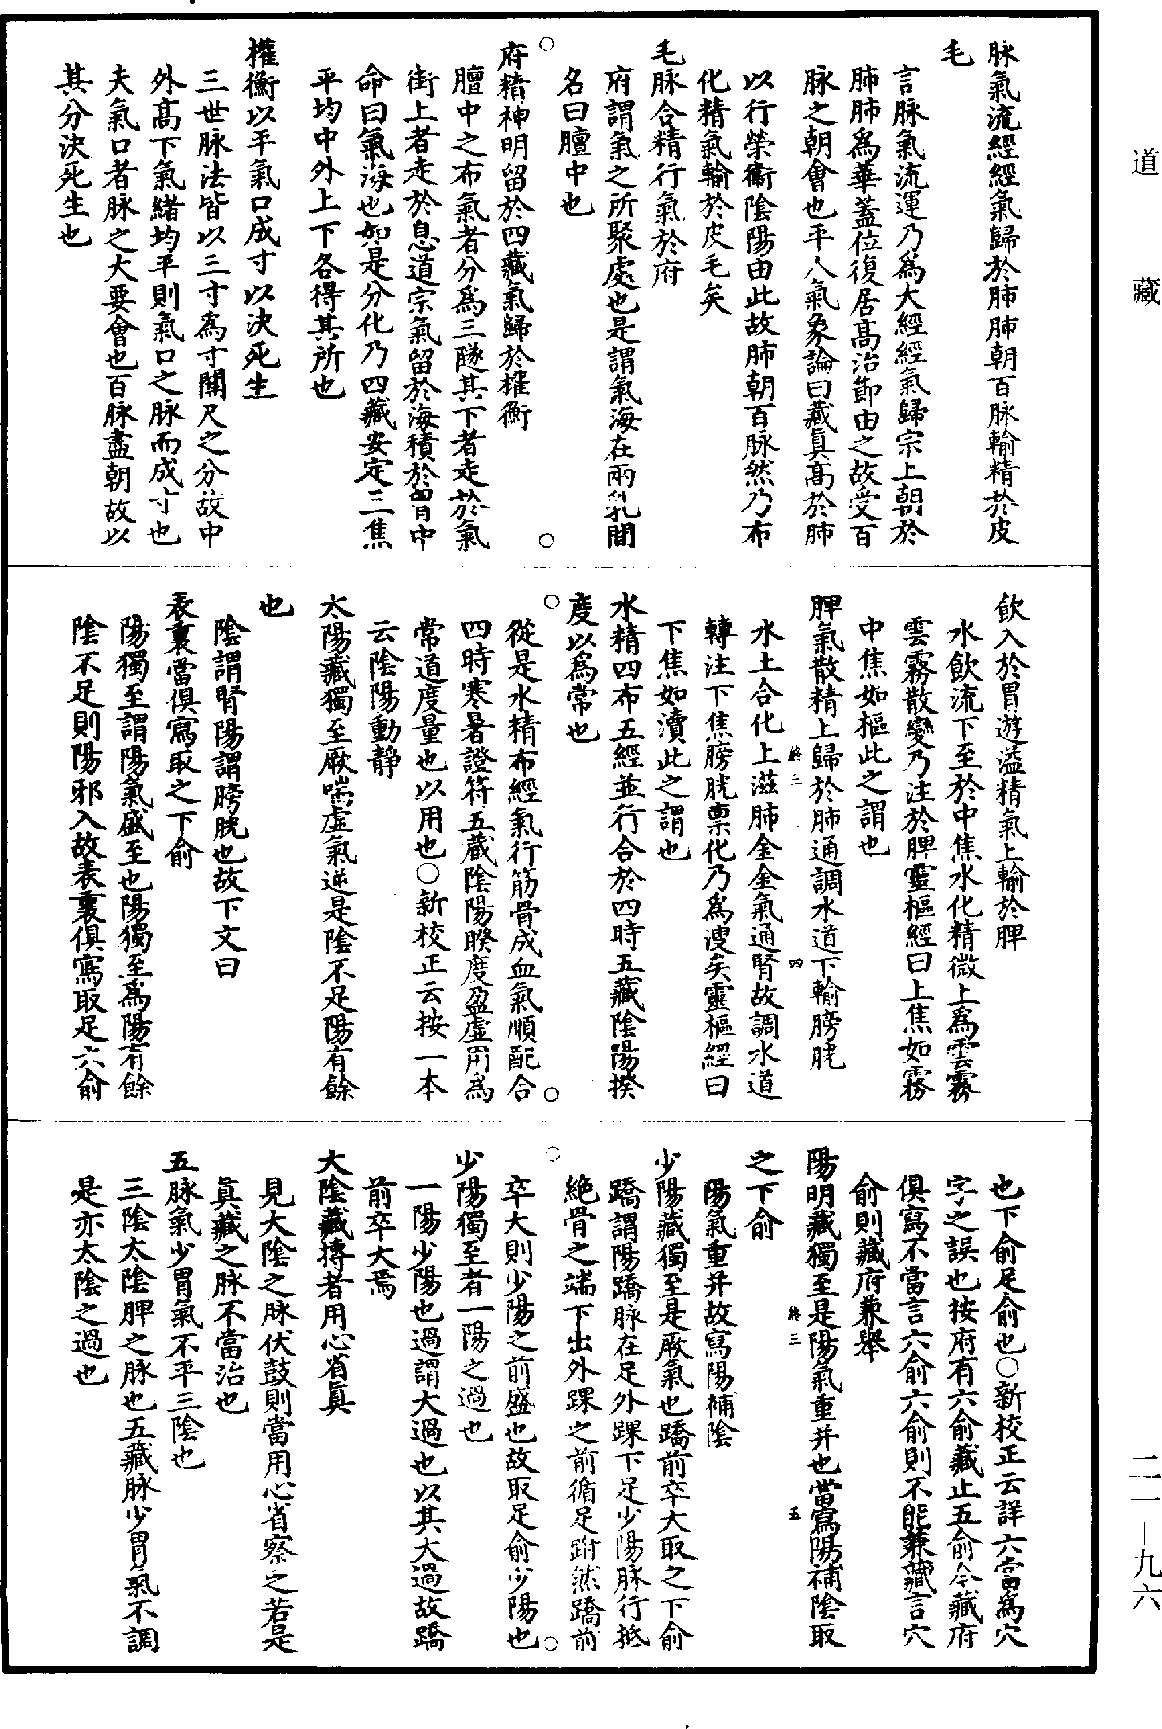 道藏
脉氣流經經氣歸於肺肺朝百脉輸精於皮
毛
言脉氣流運乃為大經經氣歸宗上朝於
肺肺為華蓋位復居髙治節由之故受百
脉之朝會也平人氣象論曰藏真髙於肺
以行榮衞陰陽由此故肺朝百脉然乃布
化精氣輸於皮毛矣
毛脉合精行氣於府
府謂氣之所聚處也是謂氣海在兩乳間
名曰膻中也
府精神明留於四藏氣歸於權衡
膻中之布氣者分為三隧其下者走於氣
街上者走於息道宗氣留於海積於胷中
命曰氣海也如是分化乃四藏安定三焦
平均中外上下各得其所也
權衡以平氣口成寸以決死生
三世脉法皆以三寸為寸關尺之分故中
外髙下氣緒均平則氣口之脉而成寸也
夫氣口者脉之大要會也百脉盡朝故以
其分決死生也
飲入於胃遊溢精氣上輸於脾
水飲流下至於中焦水化精微上為雲霧
雲霧散變乃注於脾靈樞經曰上焦如霧
中焦如樞此之謂也
脾氣散精上歸於肺通調水道下輸膀胱
水土合化上滋肺金金氣通腎故調水道
轉注下焦膀胱稟化乃為溲矣靈樞經曰
下焦如瀆此之謂也
水精四布五經並行合於四時五藏陰陽揆
度以為常也
從是水精布經氣行筋骨成血氣順配合
四時寒暑證符五藏陰陽睽度盈虛用為
常道度量也以用也○新校正云按一本
云陰陽動靜
太陽藏獨至厥喘虛氣逆是陰不足陽有餘
也
陰謂腎陽謂膀胱也故下文曰
表裏當俱寫取之下俞
陽獨至謂陽氣盛至也陽獨至為陽有餘
陰不足則陽邪入故表裏俱寫取足六俞
也下俞足俞也○新校正云詳六當為穴
字之誤也按府有六俞藏止五俞今藏府
俱寫不當言六俞六俞則不能兼藏言穴
俞則藏府兼舉
陽明藏獨至是陽氣重并也當寫陽補陰取
之下俞
陽氣重并故寫陽補陰
少陽藏獨至是厥氣也蹻前卒大取之下俞
蹻謂陽蹻脉在足外踝下足少陽脉行抵
絶骨之端下出外踝之前循足跗然蹻前
卒大則少陽之前盛也故取足俞少陽也
少陽獨至者一陽之過也
一陽少陽也過謂大過也以其大過故蹻
前卒大焉
大陰藏摶者用心省真
見大陰之脉伏鼓則當用心省察之若是
真藏之脉不當治也
五脉氣少胃氣不平三陰也
三陰太陰脾之脉也五藏脉少胃氣不調
是亦太陰之過也
終二
四
終三
五
二一—九六